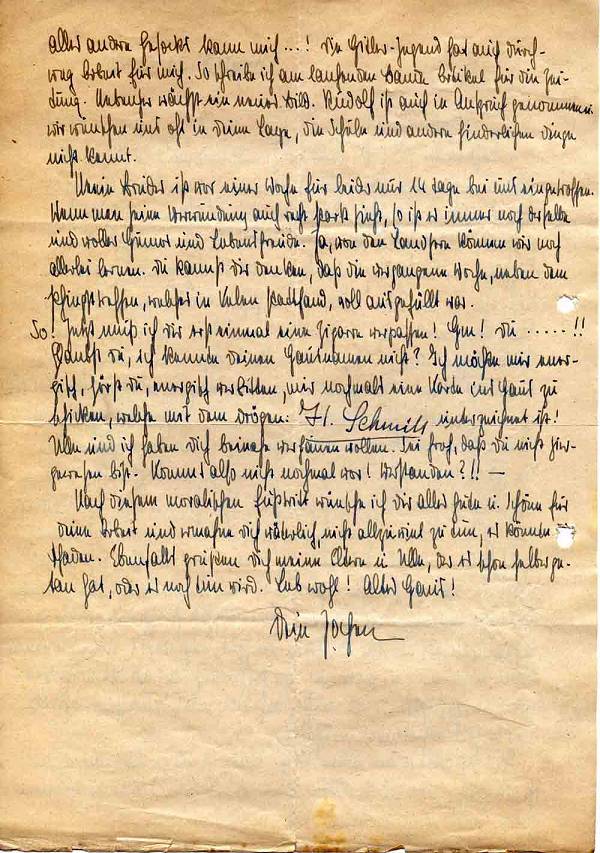 alles andere Gesocks kann mich...! Die Hitler-Jugend hat auch durch-
weg Arbeit für mich. So schreibe ich am laufenden Bande Artikel für die Zei-
tung. Nebenher wächst ein neues Bild. Rudolf ist auch in Anspruch genommen.
wir wünschen uns oft in Deine Lage, die Schule und andere hinderlichen Dinge
nicht kennt.
Mein Bruder ist vor einer Woche für leider nur 14 Tage bei uns eingetroffen.
Wenn man seine Verwundung auch recht stark sieht, so ist er immer noch derselbe
und voller Humor und Lebensfreude. Ja, von den Landsern können wir noch
allerlei lernen. Du kannst Dir denken, daß die vergangene Woche, neben dem
Pfingsttreffen, welches in stattfand, voll ausgefüllt war.
So! Jetzt muß ich Dir erst einmal eine Zigarre verpassen! Du .....!!
Glaubst Du, ich kenne Deinen nicht? Ich möchte mir ener-
gisch, hörst Du, energisch verbitten, mir nochmals eine Karte ins Haus zu
schicken, welche mit dem drögen: "H. Schmidt unterzeichnet ist!
und ich haben Dich beinahe verhauen wollen. Sei froh, daß Du nicht hier
gewesen bist. Kommt also nicht nochmal vor! Verstanden?!! —
Nach diesem moralischen Fußtritt wünsche ich Dir alles Gute u. Schöne für
Deine Arbeit und ermahne Dich väterlich, nicht allzuviel zu tun, es könnte
schaden. Ebenfalls grüßen Dich meine Eltern u. der es schon selber ge-
tan hat, oder es noch tun wird. Leb wohl! Altes Haus!
Dein Jochen